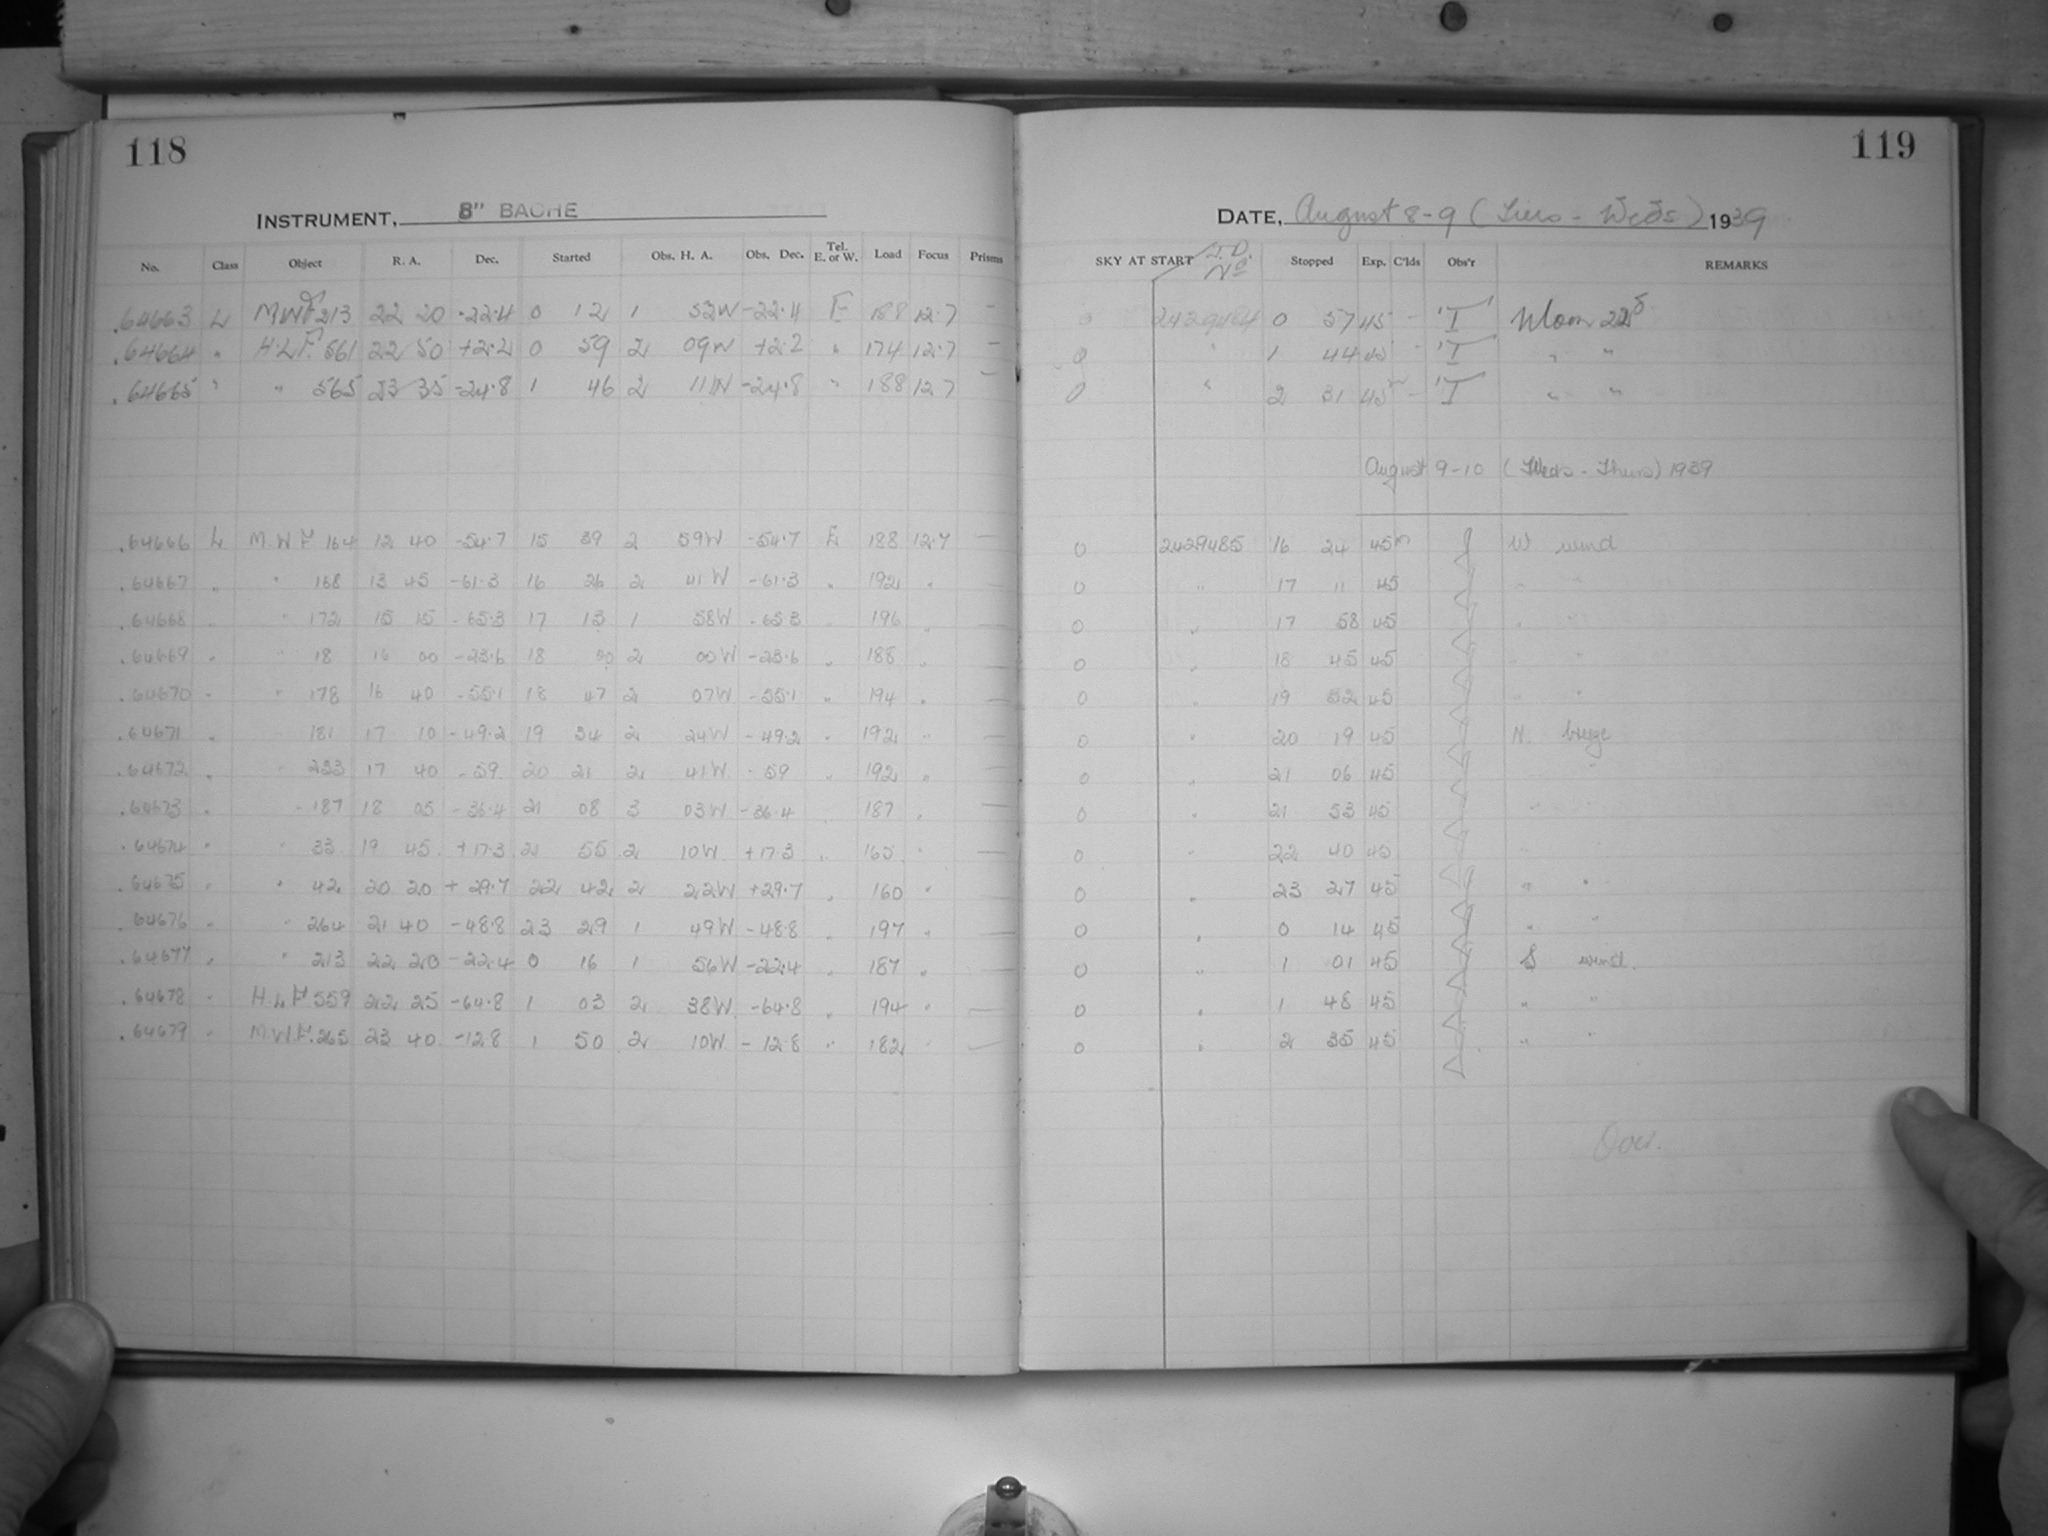 118
INSTRUMENT, 8" BACHE
No. Class Object R. A. Dec. Started Obs. H. A. Obs. Dec. Tel. E. or W. Load Focus Prisms
.64663 L MWF 213 22 20 -22.4 0 12 1 52W -22.4 E 188 12.7 —
.64664 " H.L.F. 561 22 50 +2.2 0 59 2 09W +2.2 " 174 12.7 —
.64665 " " 565 23 35 -24.8 1 46 2 11W -24.8 " 188 12.7 —
.64666 L M.W.F 164 12 40 -54.7 15 39 2 59W -54.7 E 188 12.7 —
.64667 " " 168 13 45 -61.3 16 26 2 41W -61.3 " 192 " —
.64668 " " 172 15 15 -65.3 17 13 1 58W -65.3 196 " —
.64669 " " 18 16 00 -23.6 18 00 2 00W -23.6 " 188 " —
.64670 " " 178 16 40 -55.1 18 47 2 07W -55.1 " 194 " —
.64671 " 181 17 10 -49.2 19 34 2 24W -49.2 " 192 " —
.64672 " " 233 17 40 -59 20 21 2 41W -59 " 192 " —
.64673 " " 187 18 05 -36.4 21 08 3 03W -36.4 187 " —
.64674 " " 33 19 45 +17.3 21 55 2 10W +17.3 " 165 " —
.64675 " " 42 20 20 +29.7 22 42 2 22W +29.7 " 160 " —
.64676 " " 264 21 40 -48.8 23 29 1 49W -48.8 " 197 " —
.64677 " " 213 22 20 -22.4 0 16 1 56W -22.4 " 187 " —
.64678 " H.L.F. 559 22 25 -64.8 1 03 2 38W -64.8 " 194 " —
.64679 " M.W.F. 265 23 40 -12.8 1 50 2 10W -12.8 " 182 " —
119
DATE, August 8-9 (Tues - Weds) 1939
SKY AT START J.D. No Stopped Exp. C'lds Obs'r REMARKS
0 2429484 0 57 45 - 'T' Moon 22d
0 " 1 44 45 - 'T' " "
0 " 2 31 45m - 'T' " "
August 9-10 (Weds - Thurs) 1939
0 2429485 16 24 45m J W wind
0 " 17 11 45 "
0 " 17 58 45 " "
0 " 18 45 45 " "
0 " 19 32 45 " "
0 " 20 19 45 N. breeze
0 " 21 06 45 " "
0 " 21 53 45 " "
0 " 22 40 45 "
0 " 23 27 45 " "
0 " 0 14 45 " "
0 " 1 01 45 S wind.
0 " 1 48 45 " "
0 " 2 35 45 " "
Over.